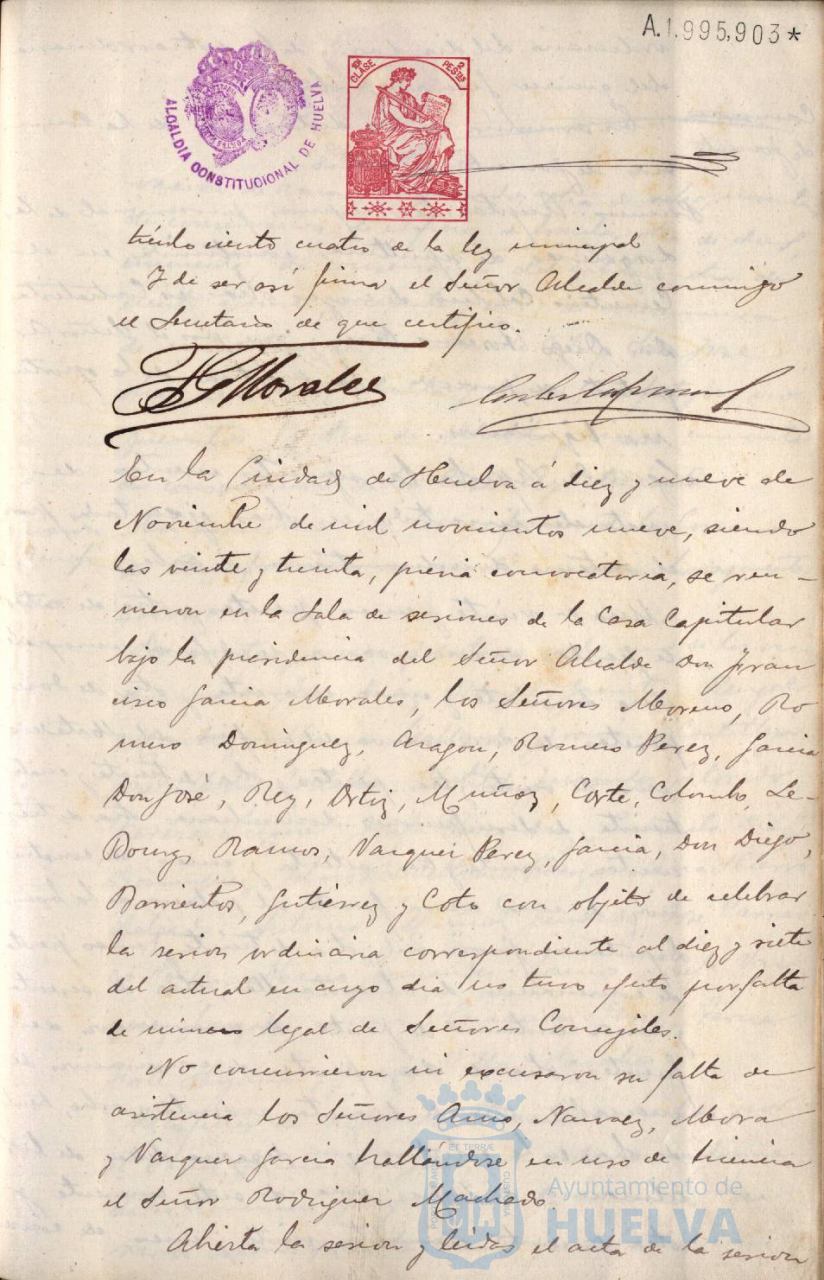 A.1.995,903*
ALCALDIA CONSTITUCIONAL DE HUELVA
CLASE
2 PESTAS
tículo ciento cuatro de la ley municipal
Y de ser así firma el Señor Alcalde conmigo
el Secretario de que certifico.
FG Morales
En la Ciudad de Huelva á diez y nueve de
Noviembre de mil novecientos nueve, siendo
las veinte y treinta, prévia convocatoria, se reu-
nieron en la Sala de sesiones de la Casa Capitular
bajo la presidencia del Señor Alcalde Don Fran
cisco Garcia Morales, los Señores Moreno, Ro
mero Dominguez, Aragon, Romero Perez, Garcia
Don José, Rey, Ortiz, Muñoz, Corte, Colombo, Le-
Bourg Ramos, Vazquez Perez, Garcia, Don Diego,
Barrientos, Gutiérrez y Coto con objeto de celebrar
la sesion ordinaria correspondiente al diez y siete
del actual en cuyo dia no tuvo efecto por falta
de número legal de Señores Concejales.
No concurrieron ni excusaron su falta de
asistencia los Señores Amo, Narvaez, Mora
y Vazquez Garcia hallándose en uso de licencia
el Señor Rodriguez Machado.
Abierta la sesion y leida el acta de la sesion
Ayuntamiento de
HUELVA